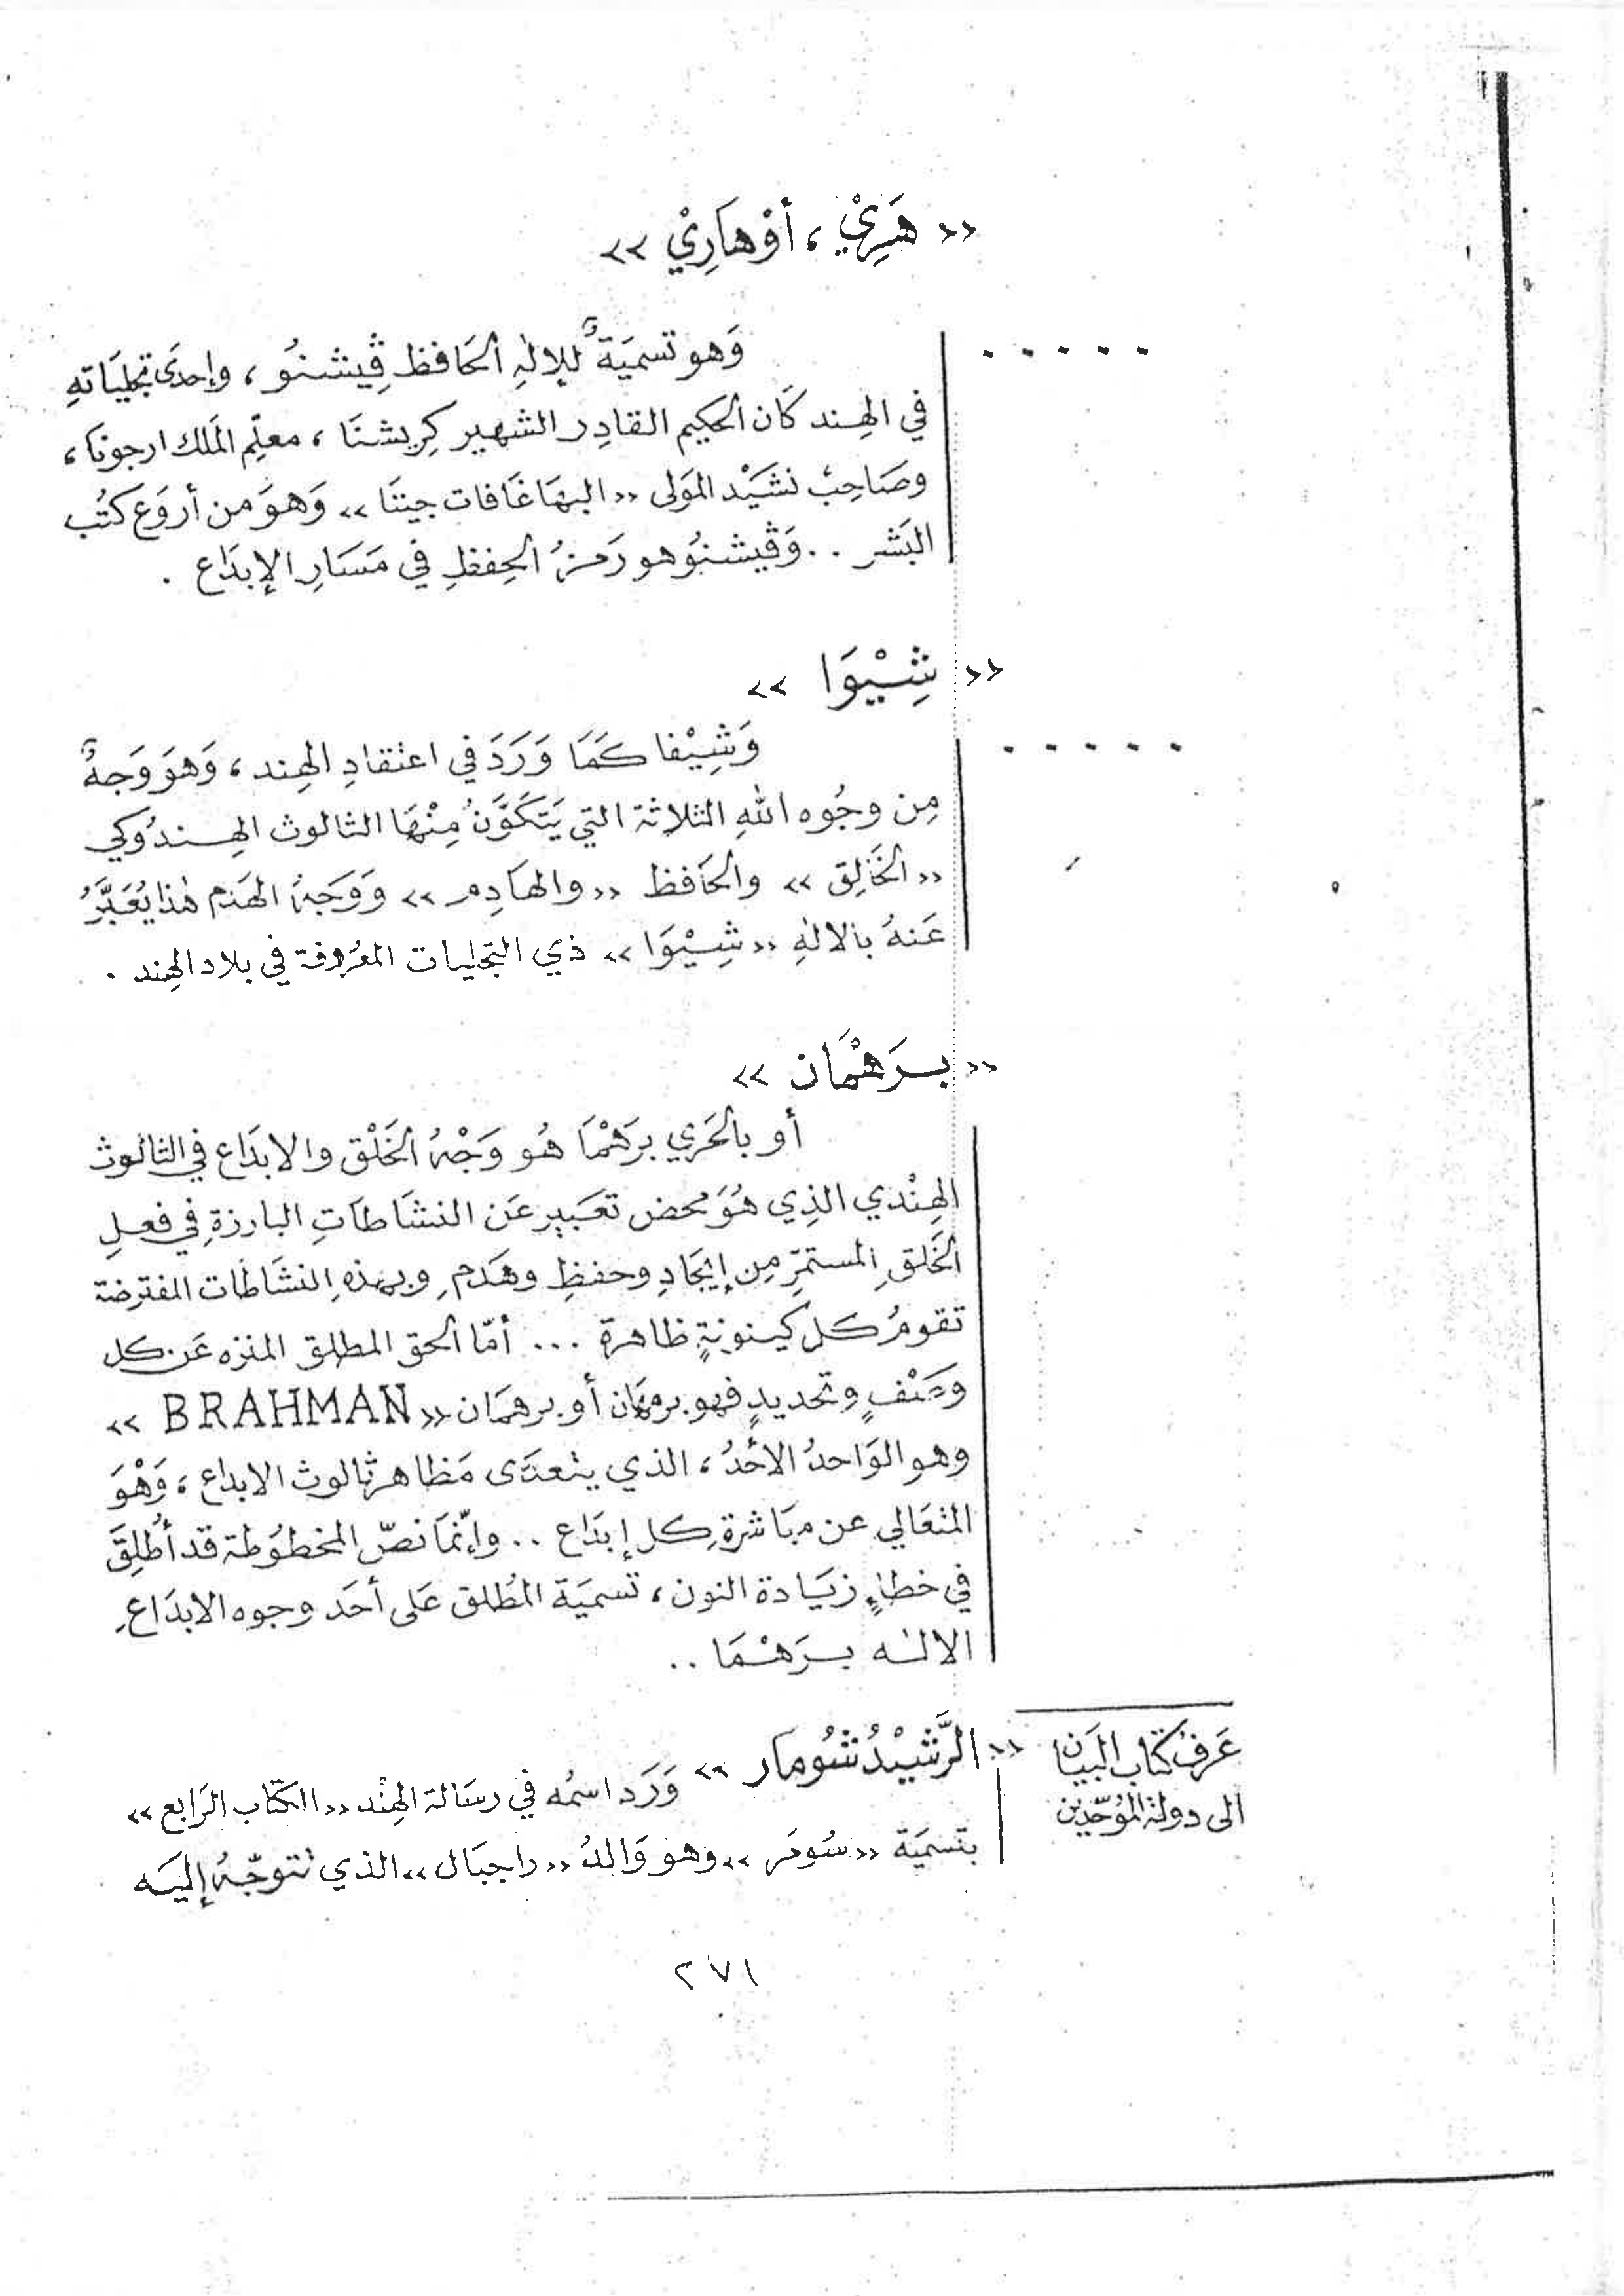 «هَرِيْ، أوْ هَارِيْ»
.....
وَهو تسميَةٌ للإلٰهِ الحَافظ ڤِيشنُو، وإحدَى تجلياتهِ
في الهِند كَان الحكيم القادِر الشهير كِريشنَا، معلِّم المَلك ارجونَا،
وصَاحِبُ نشَيْد المَولى «البهَاغَافات جيتَا» وَهوَ من أروَع كتُب
البَشر .. وَڤيشنُو هو رَمزُ الحِفظِ في مَسَارِ الإبدَاع .
«شِيْوَا»
.....
وَشِيْفا كَمَا وَرَدَ في اعتقادِ الهِند، وَهوَ وَجهٌ
مِن وجُوه اللهِ الثلاثة التي يَتَكَوَّنُ مِنْهَا الثالوث الهِندُوكي
«الخَالِق» والحَافظ «والهَادِم» وَوَجهُ الهَدْم هٰذا يُعَبَّرُ
عَنهُ بالالٰهِ «شِيْوَا» ذي التجليات المعُروفة في بلاد الهِند .
«برَهْمَان»
أو بالحَري برَهْمَا هُو وَجْهُ الخَلْق والابدَاع في الثالُوث
الهِنْدي الذِي هُوَ محض تعَبير عَن النشَاطَاتِ البارزةِ في فعلِ
الخَلقِ المستمرِّ مِن إيجَادِ وحفظِ وهَدمِ، وبهذهِ النشَاطَات المفترضة
تقومُ كل كينونةٍ ظاهرة ... أمّا الحق المطلق المنزه عَن كل
وصَنْفٍ وتحديدٍ فهو برمهَان أو برهمَان «BRAHMAN»
وهو الوَاحدُ الأحَدُ، الذي يتعدَى مَظاهر ثالوث الابداع، وَهْوَ
المتعَالي عن مبَاشرةِ كل إبدَاع .. وإنّمَا نصّ المخطوُطة قد أُطْلِقَ
في خطاءٍ زيَادة النون، تسميَة المُطلق عَلى أحَد وجوه الابدَاعِ
الالٰه برَهْمَا ..
عَرفُ كتَاب البَيَان
الى دولة المُوَحّدين
«الرَّشيْدُ شُومار» وَرَد اسمُه في رسَالة الهِنْد «الكتَاب الرَابع»
بتَسميَة «سُومَر» وهو وَالدُ «راجبَال» الذي نتوجّهُ إليَه
٢٧١